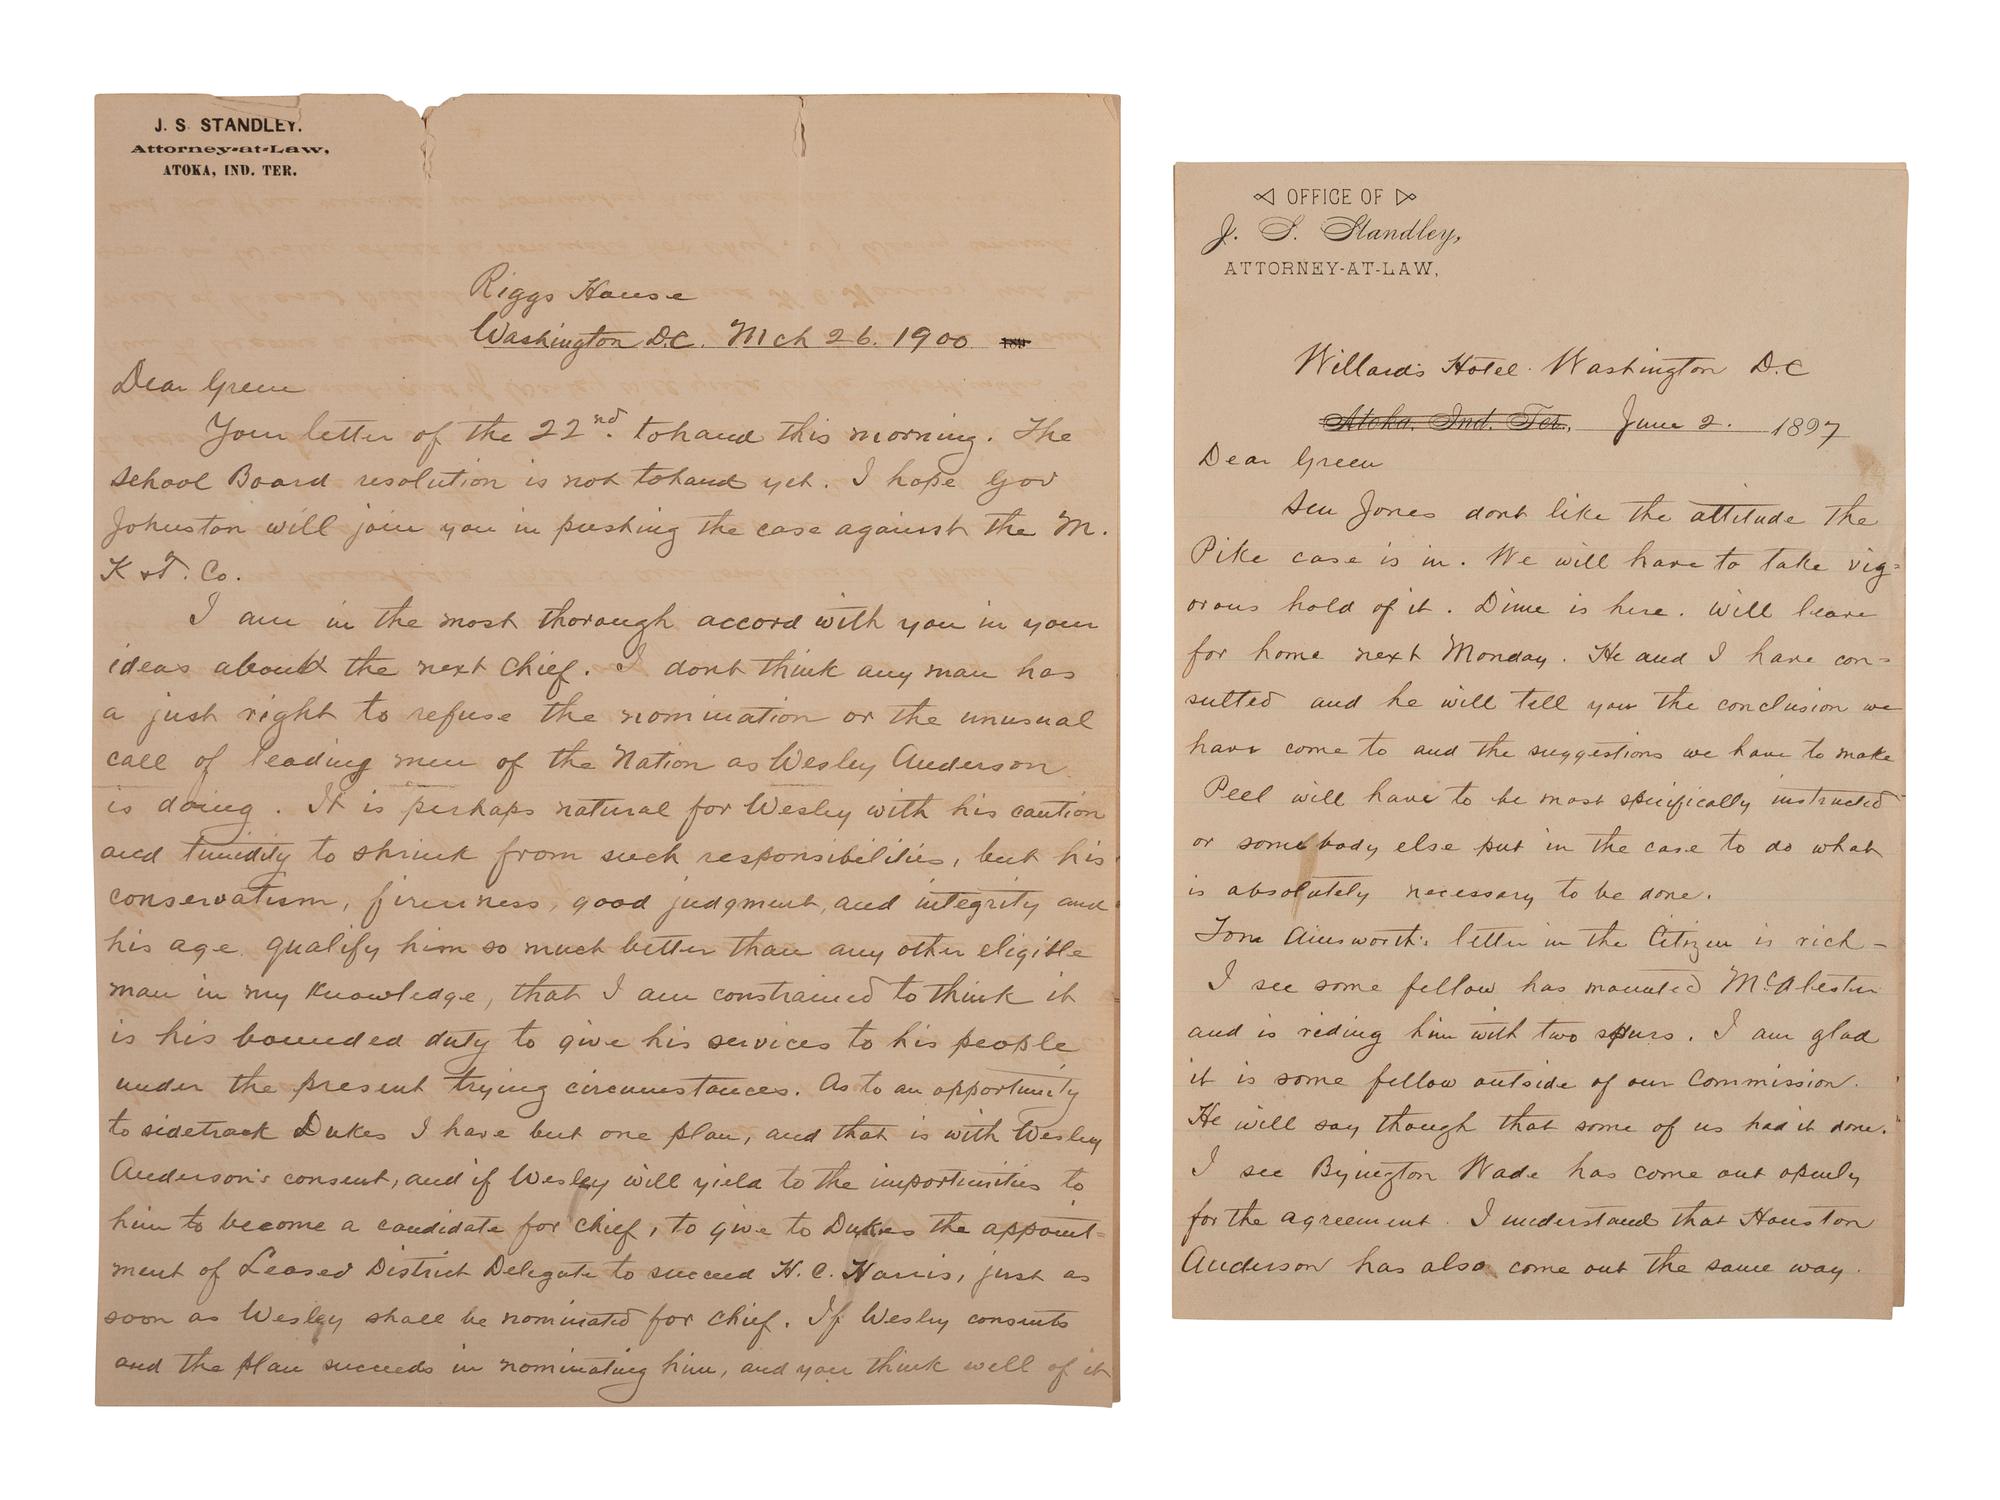 J. S. STANDLEY.
Attorney-at-Law,
ATOKA, IND. TER.
Riggs House
Washington D.C. Mch 26. 1900 189
Dear Green
Your letter of the 22nd. tohand this morning. The
school Board resolution is not tohand yet. I hope Gov
Johnston will join you in pushing the case against the M.
K & T. Co.
I am in the most thorough accord with you in your
ideas about the next Chief. I dont think any man has
a just right to refuse the nomination or the unusual
call of leading men of the Nation as Wesley Anderson
is doing. It is perhaps natural for Wesley with his caution
and timidity to shrink from such responsibilities, but his
conservatism, firmness, good judgment, and integrity and
his age. qualify him so much better than any other eligible
man in my knowledge, that I am constrained to think it
is his bounded duty to give his services to his people
under the present trying circumstances. As to an opportunity
to sidetrack Dukes I have but one plan, and that is with Wesley
Anderson's consent, and if Wesley will yield to the importunities to
him to become a candidate for chief, to give to Dukes the appoint-
ment of Leased District Delegate to succeed H. C. Harris, just as
soon as Wesley shall be nominated for chief. If Wesley consents
and the plan succeeds in nominating him, and you think well of it
OFFICE OF
J. S. Standley,
ATTORNEY-AT-LAW,
Willard's Hotel. Washington D.C
Atoka, Ind. Ter., June 2. 1897
Dear Green
Sen Jones dont like the attitude the
Pike case is in. We will have to take vig=
orous hold of it. Dime is here. Will leave
for home next Monday. He and I have con=
sulted and he will tell you the conclusion we
have come to and the suggestions we have to make
Peel will have to be most specifically instructed
or somebody else put in the case to do what
is absolutely necessary to be done.
Tom Ainsworth's letter in the Citizen is rich -
I see some fellow has mounted McAlester
and is riding him with two spurs. I am glad
it is some fellow outside of our Commission.
He will say though that some of us had it done.
I see Byington Wade has come out openly
for the agreement. I understand that Houston
Anderson has also come out the same way.